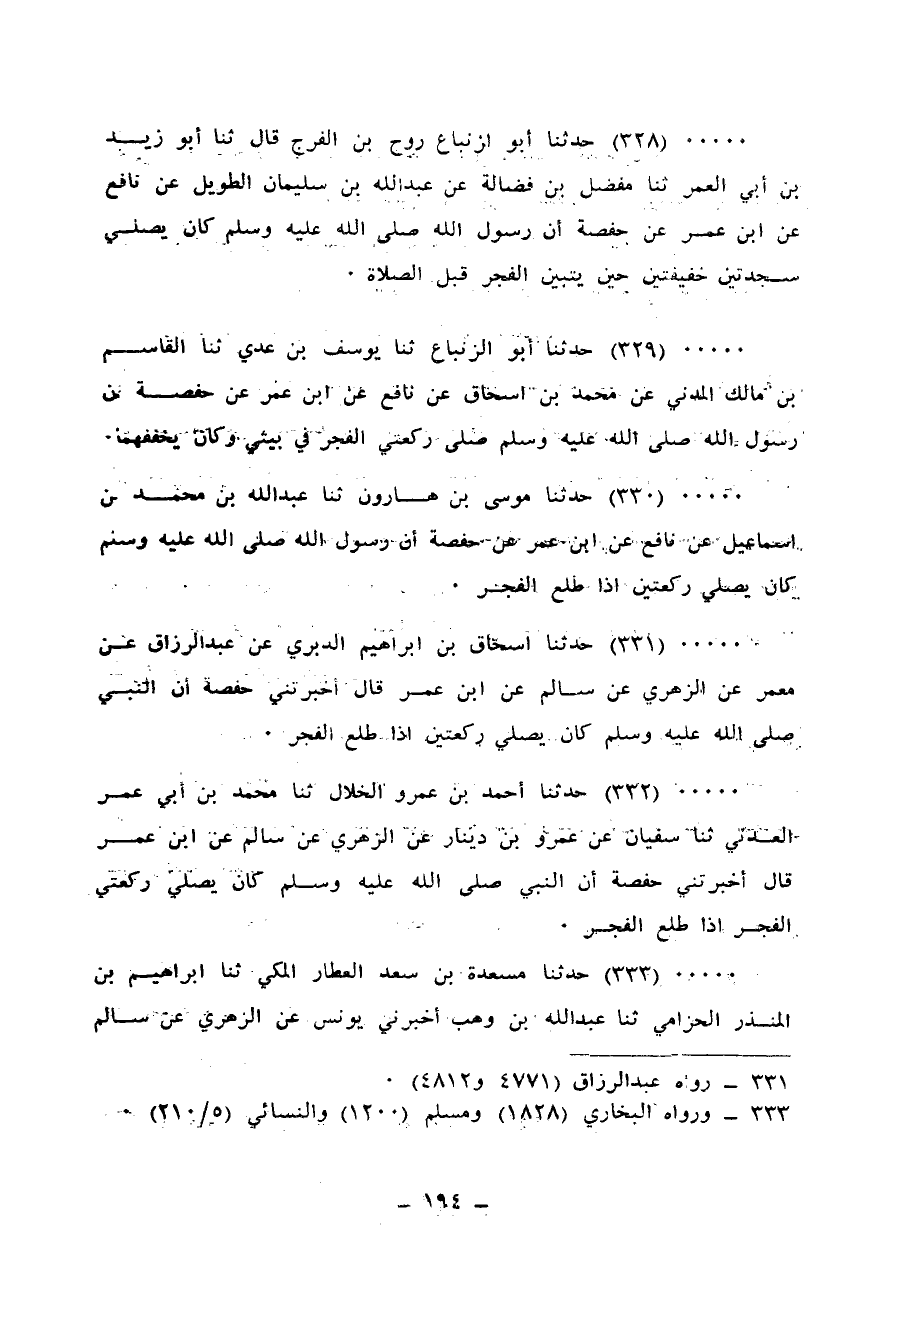 ٠٠٠٠٠ (٣٢٨) حدثنا أبو ازنباع روح بن الفرج قال ثنا أبو زيـــد
بن أبي العمر ثنا مفضل بن فضالة عن عبدالله بن سليمان الطويل عن نافع
عن ابن عمـر عن حفصة أن رسول الله صلى الله عليه وسلم كان يصلـي
سـجدتين خفيفتين حين يتبين الفجر قبل الصلاة ٠
٠٠٠٠٠ (٣٢٩) حدثنا أبو الزنباع ثنا يوسف بن عدي ثنا القاســم
بن مالك المدني عن محمد بن اسحاق عن نافع عن ابن عمر عن حفصـــة
رسول الله صلى الله عليه وسلم صلى ركعتي الفجر في بيتي وكان يخففهما٠
٠٠٠٠٠ (٣٣٠) حدثنا موسى بن هــارون ثنا عبدالله بن محمــد بن
اسماعيل عن نافع عن ابن عمر عن حفصة أن رسول الله صلى الله عليه وسلم
كان يصلي ركعتين اذا طلع الفجـر ٠
٠٠٠٠٠ (٣٣١) حدثنا اسحاق بن ابراهيم الدبري عن عبدالرزاق عـن
معمر عن الزهري عن سـالم عن ابن عمـر قال أخبرتني حفصة أن النبـي
صلى الله عليه وسلم كان يصلي ركعتين اذا طلع الفجر ٠
٠٠٠٠٠ (٣٣٢) حدثنا أحمد بن عمرو الخلال ثنا محمد بن أبي عمـر
العـدني ثنا سفيان عن عمرو بن دينار عن الزهري عن سالم عن ابن عمــر
قال أخبرتني حفصة أن النبي صلى الله عليه وسـلم كان يصلي ركعتي
الفجـر اذا طلع الفجـر ٠
٠٠٠٠٠ (٣٣٣) حدثنا مسعدة بن سعد العطار المكي ثنا ابراهيـم بن
المنـذر الحزامي ثنا عبدالله بن وهب أخبرني يونس عن الزهري عن سـالم
٣٣١ ـ رواه عبدالرزاق (٤٧٧١ و٤٨١٢) ٠
٣٣٣ ـ ورواه البخاري (١٨٢٨) ومسلم (١٢٠٠) والنسائي (٢١٠/٥) ٠
ـ ١٩٤ ـ